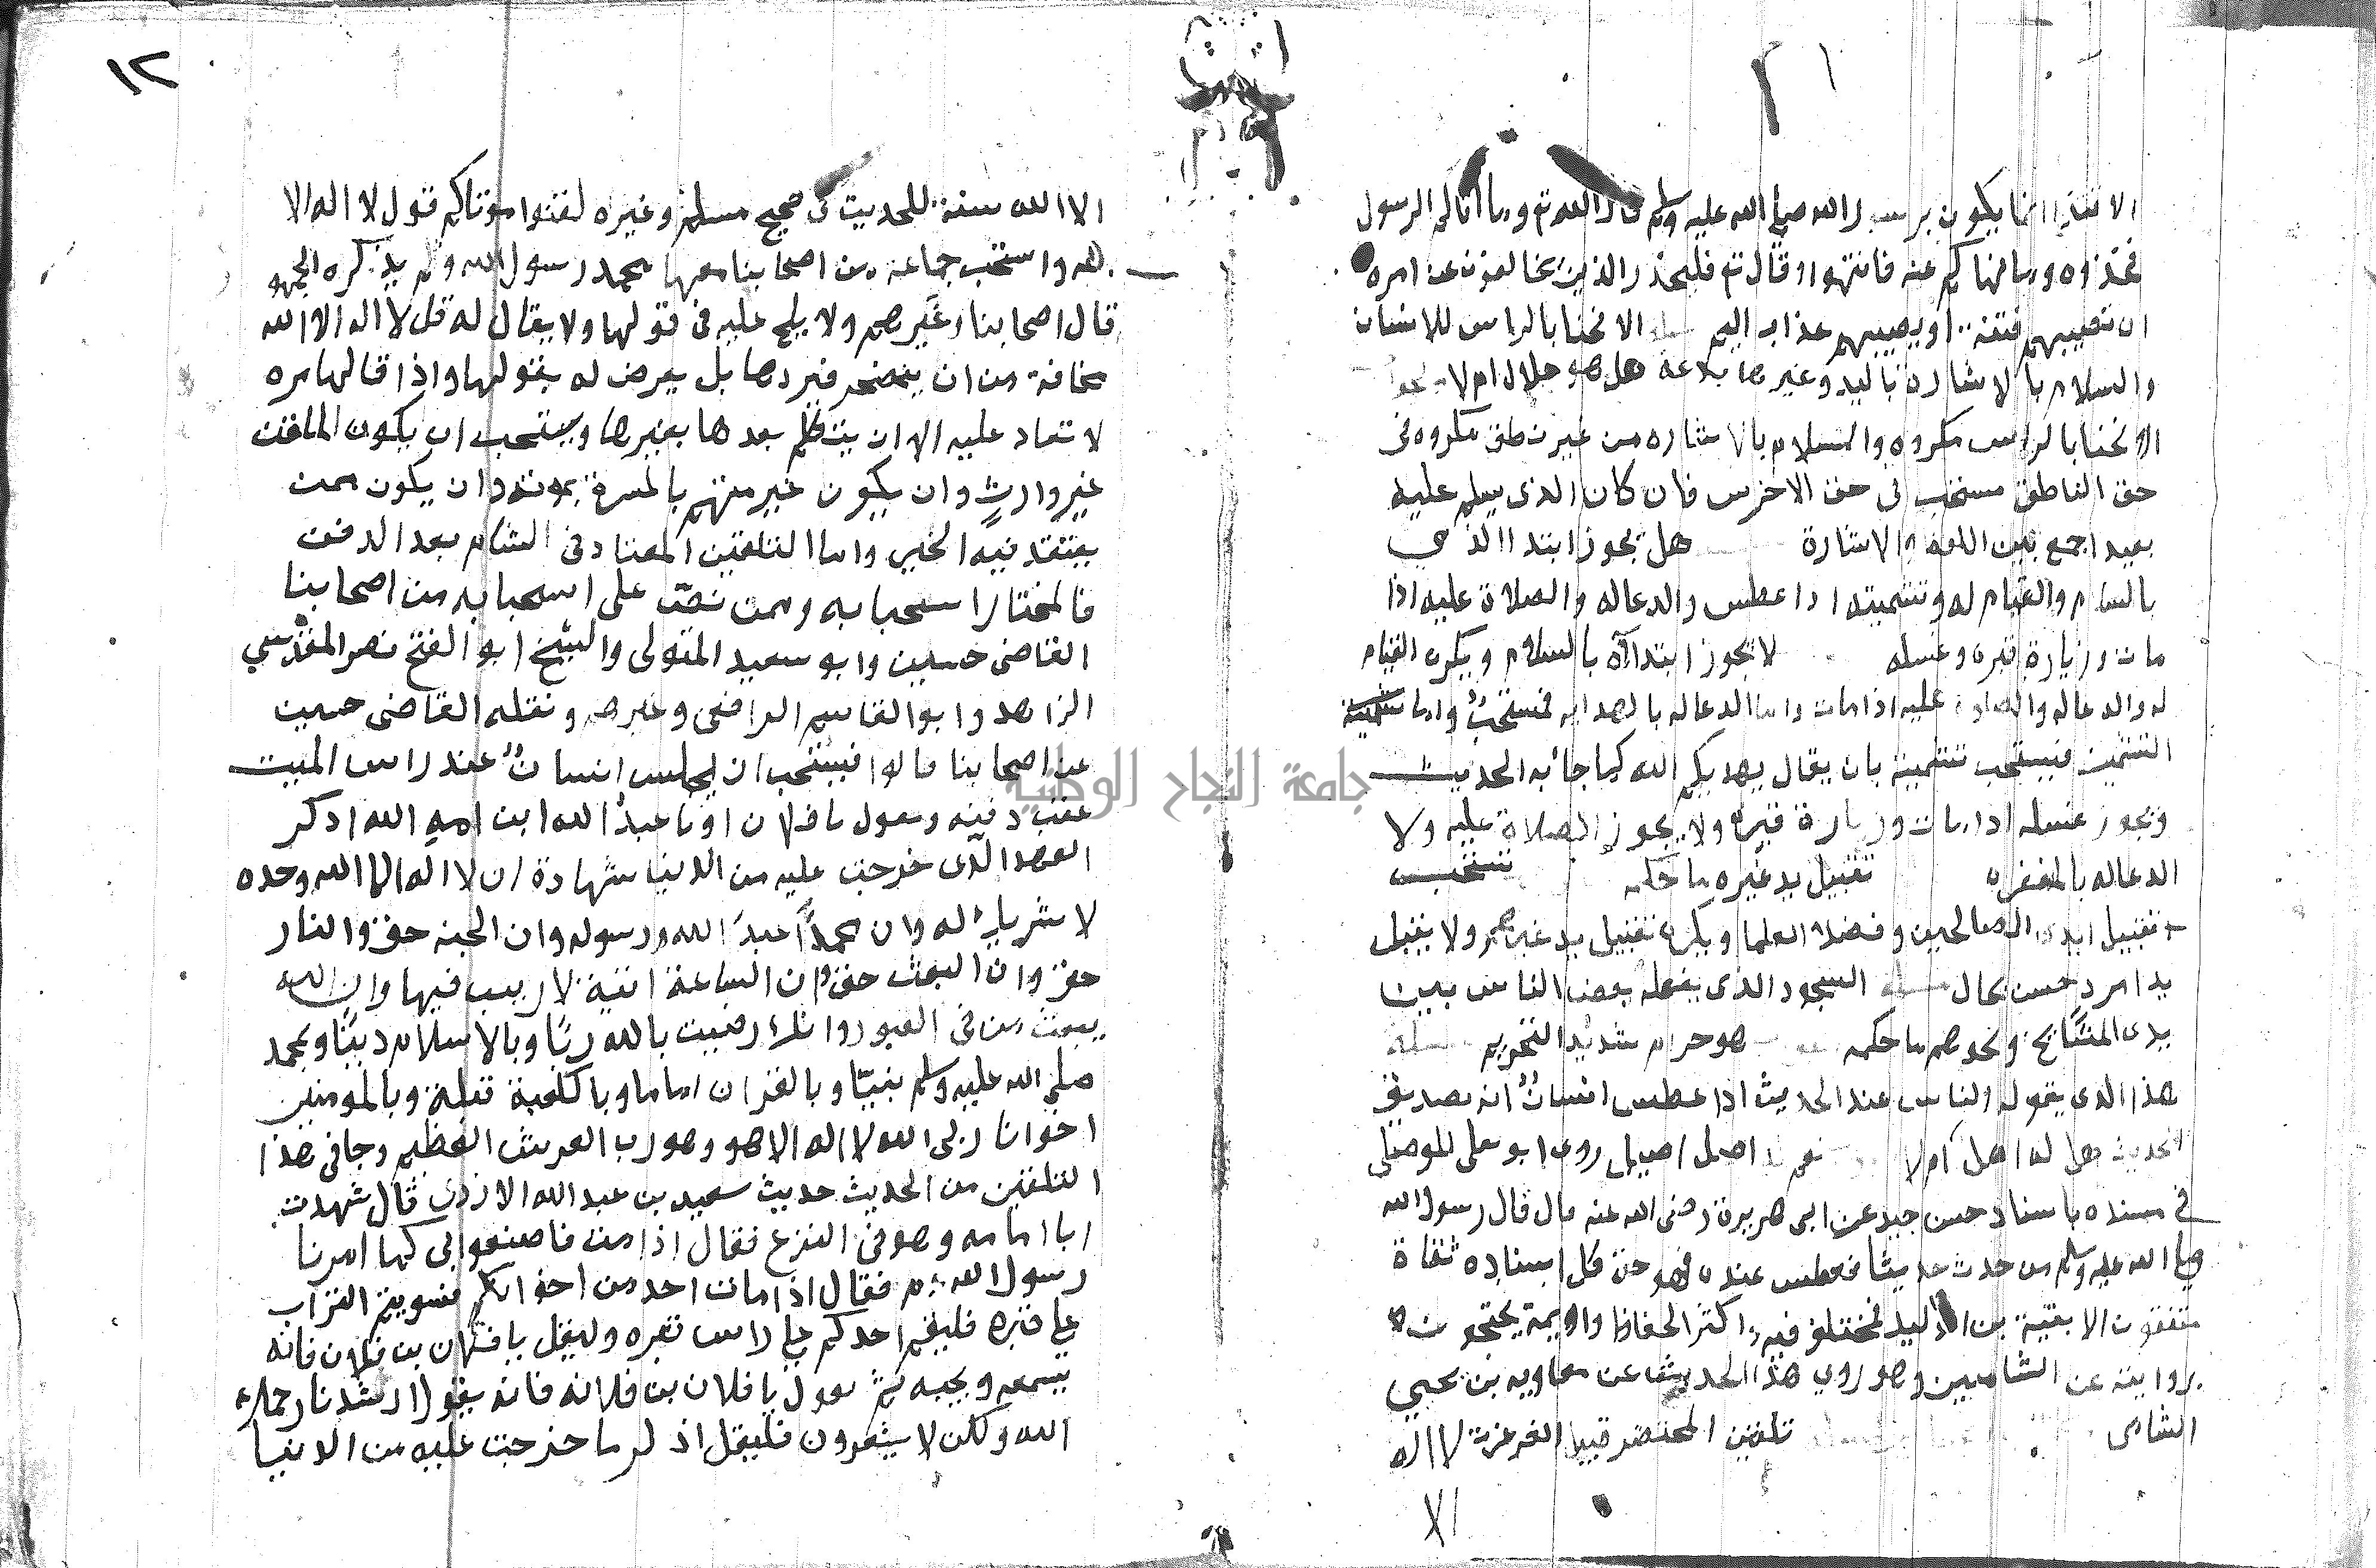 ١٢
الاقتدا انما يكون برسول الله صلى الله عليه وسلم قال الله تع وما اتاكم الرسول
فخذوه وما نهاكم عنه فانتهوا وقال تع فليحذر الذين يخالفون عن امره
ان تصيبهم فتنة او يصيبهم عذاب اليم الانحنا بالراس للانسان
والسلام بالاشارة باليد وغيرها بلاغة هل هو حلال ام لا
الانحنا بالراس مكروه والسلام بالاشاره من غير نطق مكروه فى
حق الناطق مستحب فى حق الاخرس فان كان الذى يسلم عليه
بعيد اجمع بين اللفظ والاشارة هل يجوز ابتدا الذمي
بالسلام والقيام له وتشميته اذا عطس والدعا له والصلاة عليه اذا
مات وزيارة قبره وغسله لا يجوز ابتداآه بالسلام ويكره القيام
له والدعا له والصلاة عليه اذا مات واما الدعا له بالهدايه فمستحبٌ واما تشميته
التشميت فيستحب تشميته بان يقال يهديكم الله كما جا به الحديث
ويجوز غسله اذا مات وزيارة قبره ولا يجوز الصلاة عليه ولا
الدعا له بالمغفره تقبيل يد غيره ما حكمه تستحب
تقبيل ايدى الصالحين وفضلا العلما ويكره تقبيل يد غيرهم ولا يقبل
يد امرد حسن بحال مسله السجود الذى يفعله بعض الناس بين
يدى المشايخ ونحوهم ما حكمه هو حرام شديد التحريم مسله
هذا الذى يقوله الناس عند الحديث اذا عطس انسانٌ انه تصديق
الحديث هل له اصل ام لا نعم له اصل اصيل روى ابو يعلى الموصلى
فى مسنده باسناد حسن جيد عن ابى هريرة رضى الله عنه قال قال رسول الله
صلى الله عليه وسلم من حدث حديثا فعطس عنده فهو حق كل اسناده ثقاة
متفقون الا بقية بن الوليد فمختلف فيه واكثر الحفاظ والايمة يحتجون
بروايته عن الشاميين وهو روي هذا الحديث عن معاويه بن يحيي
الشامى تلقين المحتضر قبل الغرغرة لا اله
الا الله سنة للحديث فى صحيح مسلم وغيره لقنوا موتاكم قول لا اله الا
الله واستحب جماعة من اصحابنا معها محمد رسول الله ولم يذكره الجمهو
قال اصحابنا وغيرهم ولا يلح عليه فى قولها ولا يقال له قل لا اله الا الله
مخافة من ان يتضجر فيردها بل يعرض له بقولها واذا قالها مره
لا تعاد عليه الا ان يتكلم بعدها بغيرها ويستحب ان يكون الملقن
غير وارثٍ وان يكون غير متهم بالمسرة بموته وان يكون ممن
يعتقد فيه الخير واما التلقين المعتاد فى الشام بعد الدفن
فالمختار استحبابه وممن نصّ على استحبابه من اصحابنا
القاضى حسين وابو سعيد المتولى والشيخ ابو الفتح نصر المقدسي
الزاهد وابو القاسم الرافعى وغيرهم ونقله القاضى حسين
عن اصحابنا قالوا فيستحب ان يجلس انسانٌ عند راس الميت
عقب دفنه ويقول يا فلان او يا عبد الله ابن امه الله اذكر
العهد الذى خرجت عليه من الدنيا شهادة ان لا اله الا الله وحده
لا شريك له وان محمداً عبدَ الله ورسوله وان الجنه حق والنار
حق وان البعث حق وان الساعة اتية لا ريب فيها وان الله
يبعث من فى القبور وانك رضيت بالله ربًا وبالاسلام دينًا وبمحمد
صلى الله عليه وسلم نبيًّا وبالقران اماما وبالكعبة قبلة وبالمومنين
اخوانا ربى الله لا اله الا هو وهو رب العرش العظيم وجا فى هذا
التلقين من الحديث حديث سعيد بن عبد الله الازدى قال شهدت
ابا امامه وهو فى النزع فقال اذا مت فاصنعوا بى كما امرنا
رسول الله فقال اذا مات احد من اخوانكم فسويتم التراب
على قبره فليقم احدكم على راس قبره وليقل يا فلان بن فلان فانه
يسمعه ويجيبه ثم يقول يا فلان بن فلانه فانه يقول ارشدنا رحمك
الله ولكن لا يشعرون فليقل اذكر ما خرجت عليه من الدنيا
جامعة النجاح الوطنية